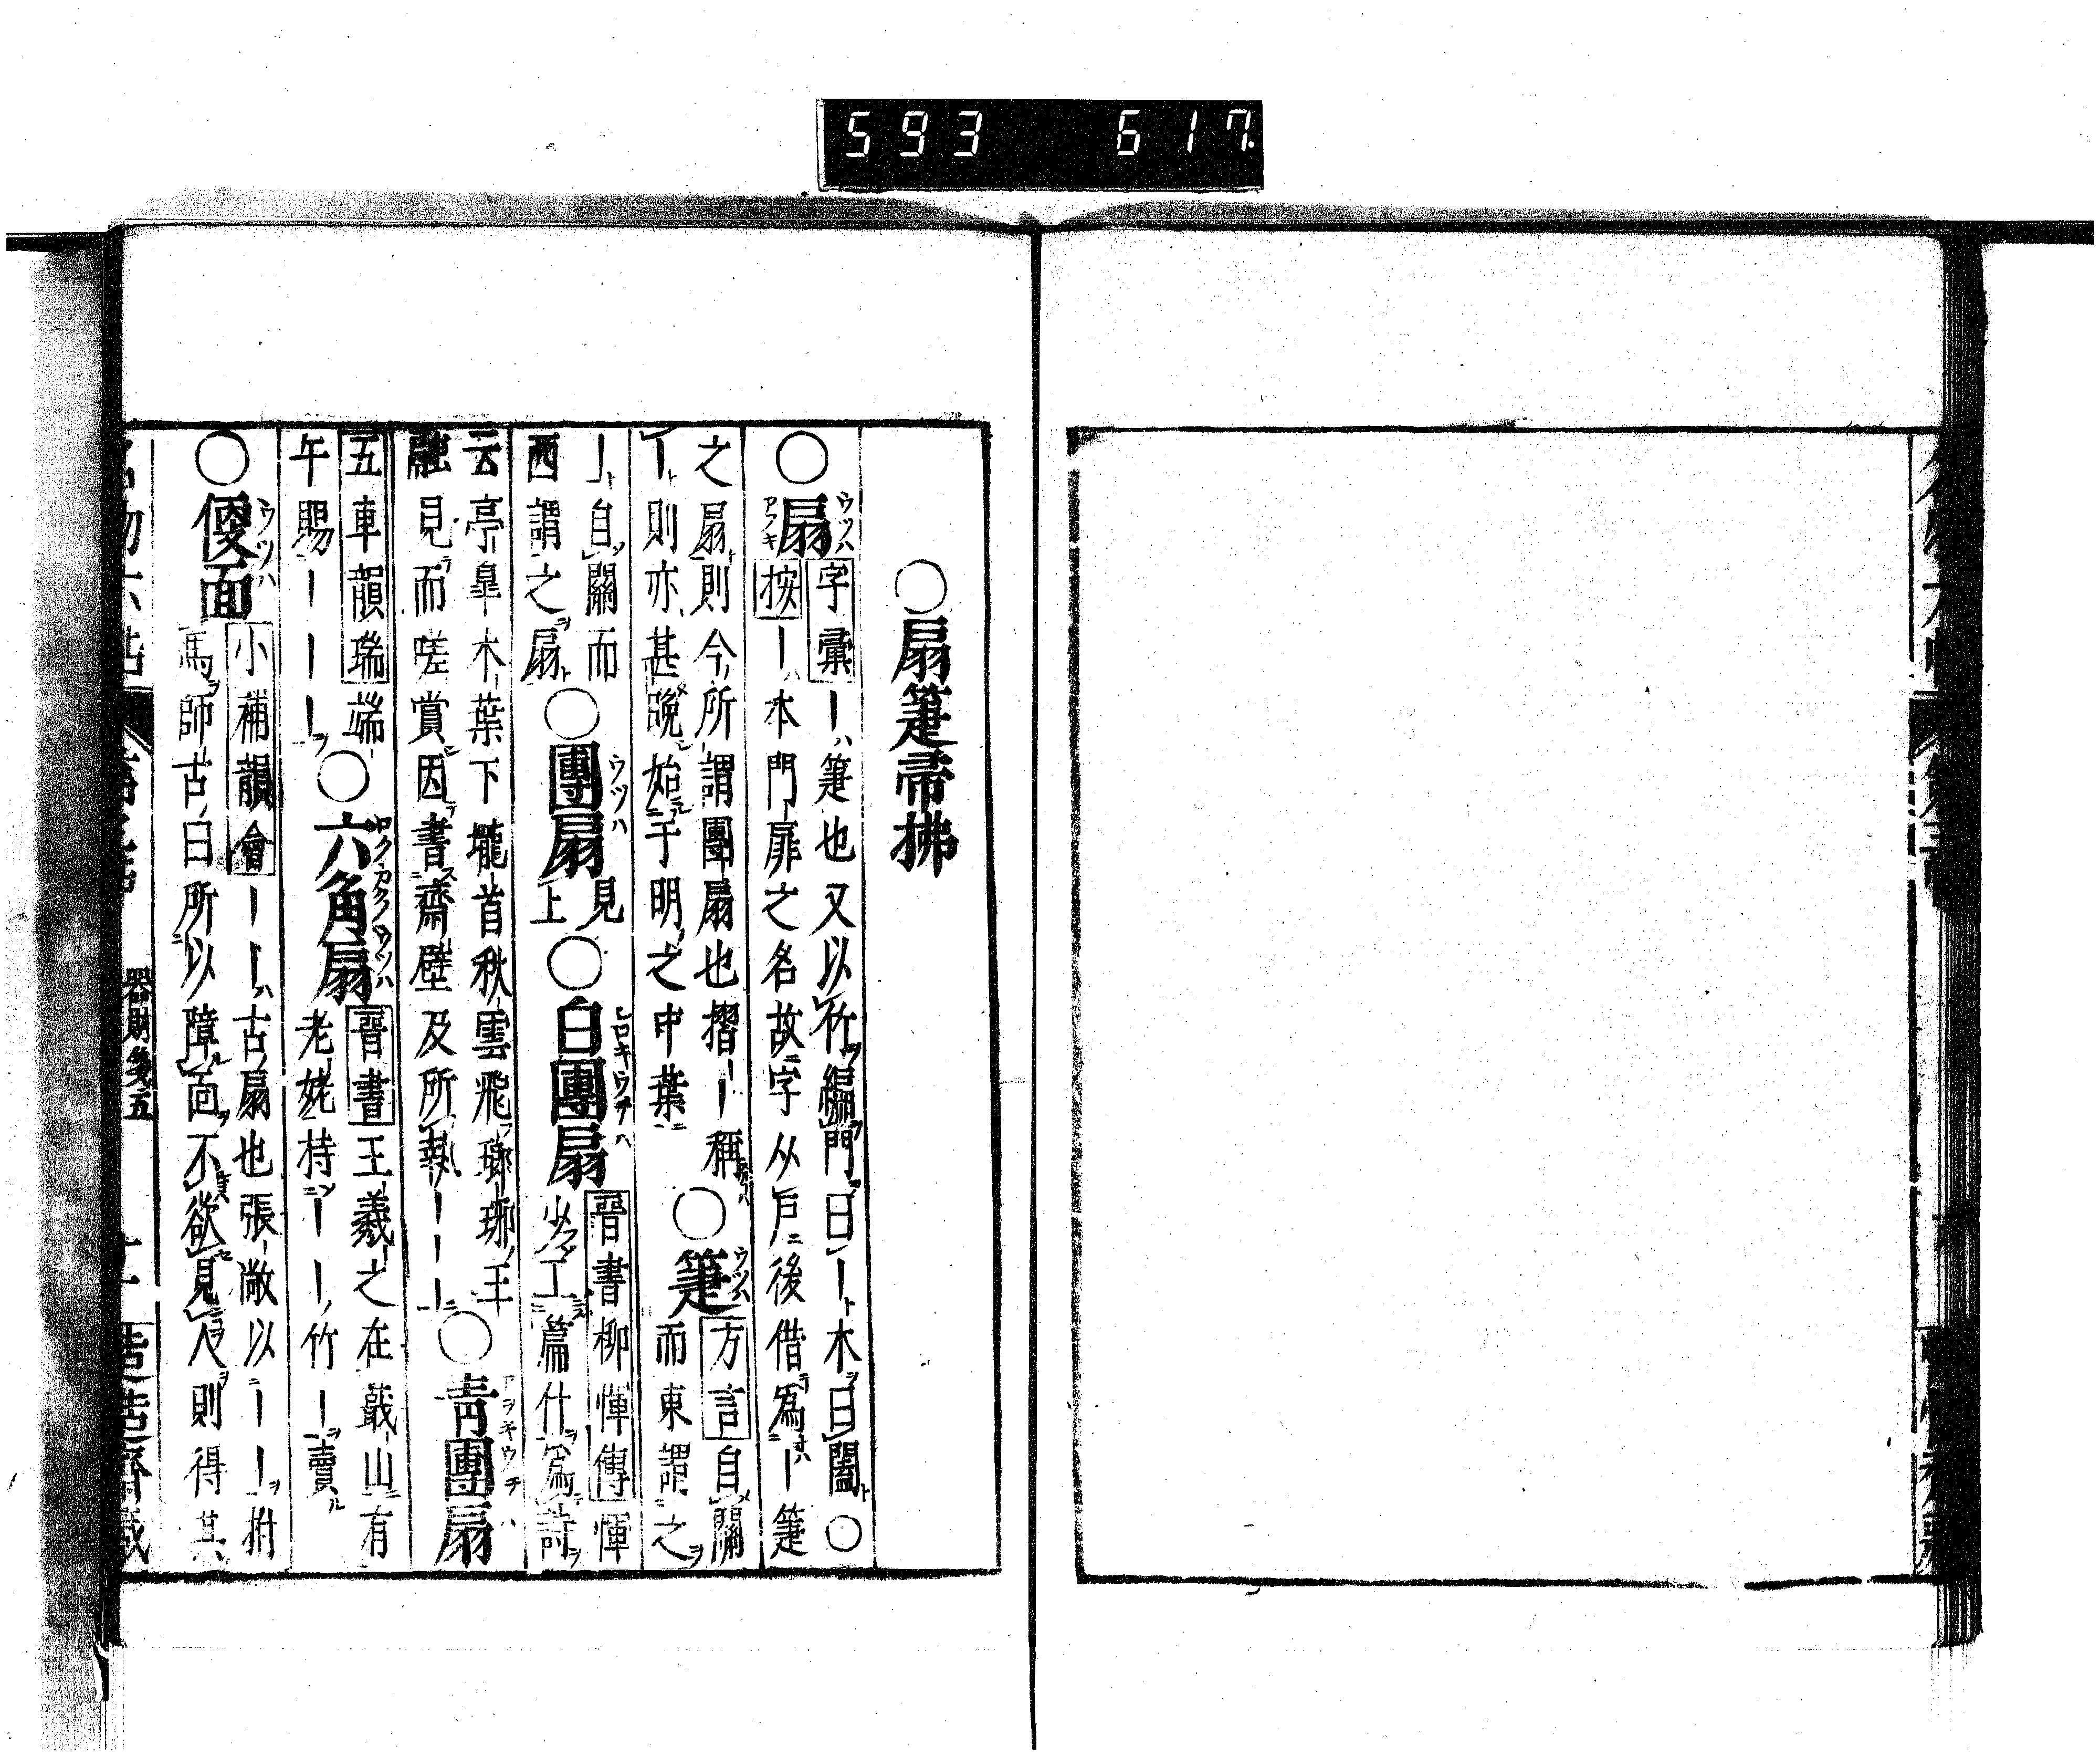 593 617
○扇箑帚拂
○扇ウツハアフキ字彙｜ハ箑也又以竹編門曰｜木曰闔○
按｜本門扉之名故字从戶後借爲｜箑
之扇則今所謂團扇也摺｜稱
｜則亦甚晩始于明之中葉○箑方言自關
而東謂之
｜自關而
西謂之扇○團扇ウツハ見上○白團扇シロキウチハ晉書柳惲傳惲
少工篇什爲詩
云亭皐木葉下壠首秋雲飛瑯琊王
融見而嗟賞因書齋壁及所執｜｜｜○靑團扇アヲキウチハ
五車韻瑞端
午賜｜｜｜○六角扇ロクカクノウツハ晉書王羲之在蕺山有
老姥持｜｜｜竹｜賣
○便面ウツハ小補韻會｜｜古扇也張敞以｜｜拊
馬師古曰所以障面不欲見人則得其
器財箋五